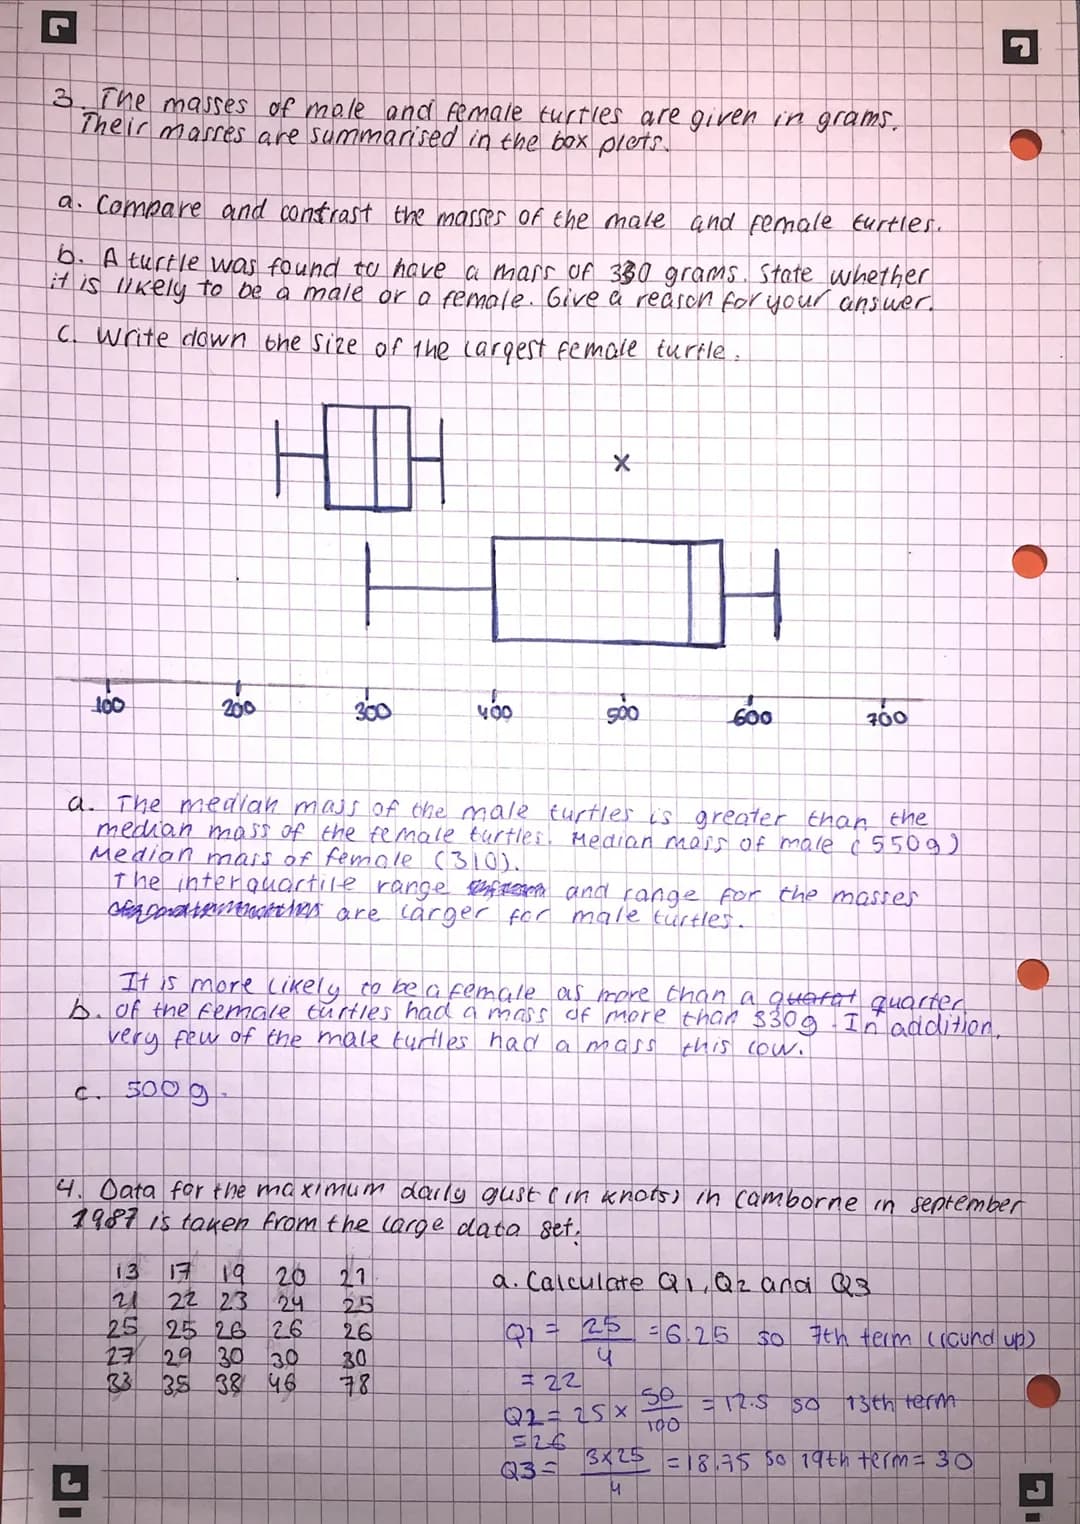 3. The masses of male and female turtles are given in grams.
Their masses are summarised in the box plots.
a. Compare and contrast the masses of the male and female turtles.
b. A turtle was found to have a mass of 330 grams. State whether
it is likely to be a male or a female. Give a reason for your answer.
c. Write down the size of the largest female turtle.
x
100 200 300 400 500 600 700
a. The median mass of the male turtles is greater than the
median mass of the female turtles. Median mass of male (550g)
Median mass of female (310).
The interquartile range and range for the masses
are larger for male turtles.
It is more likely to be a female as more than a quarter
b. of the female turtles had a mass of more than 330g. In addition,
very few of the male turtles had a mass this low.
c. 500g.
4. Data for the maximum daily gust (in knots) in Camborne in september
1987 is taken from the large data set:
13 17 19 20 21
21 22 23 24 25
25 25 26 26 26
27 29 30 30 30
33 35 38 46 78
a. Calculate Q1, Q2 and Q3
Q1 = 25/4 = 6.25 so 7th term (round up)
= 22
Q2 = 25 x 50/100 = 12.5 so 13th term
= 26
Q3 = 3x25/4 = 18.75 so 19th term = 30